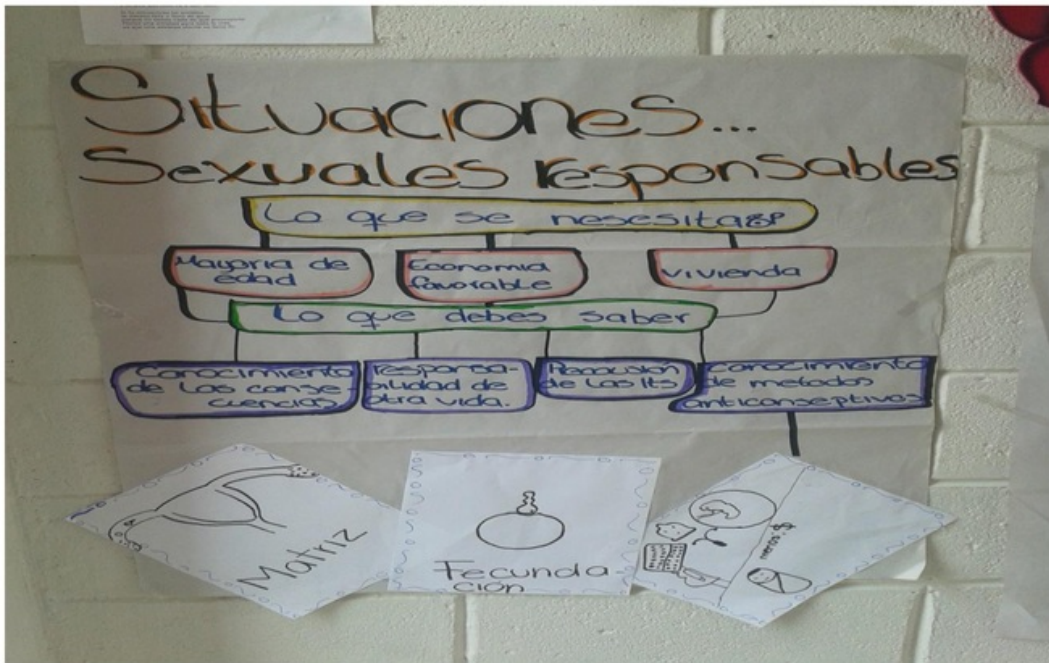 Situaciones...
Sexuales responsables
Lo que se nesesita??
Mayoria de
edad
Economia
favorable
vivienda
Lo que debes saber
Conocimiento
de las conse
cuencias
responsa-
bilidad de
otra vida.
de las Its
conocimiento
de metodos
anticonseptivos
Matriz
Fecunda-
ción